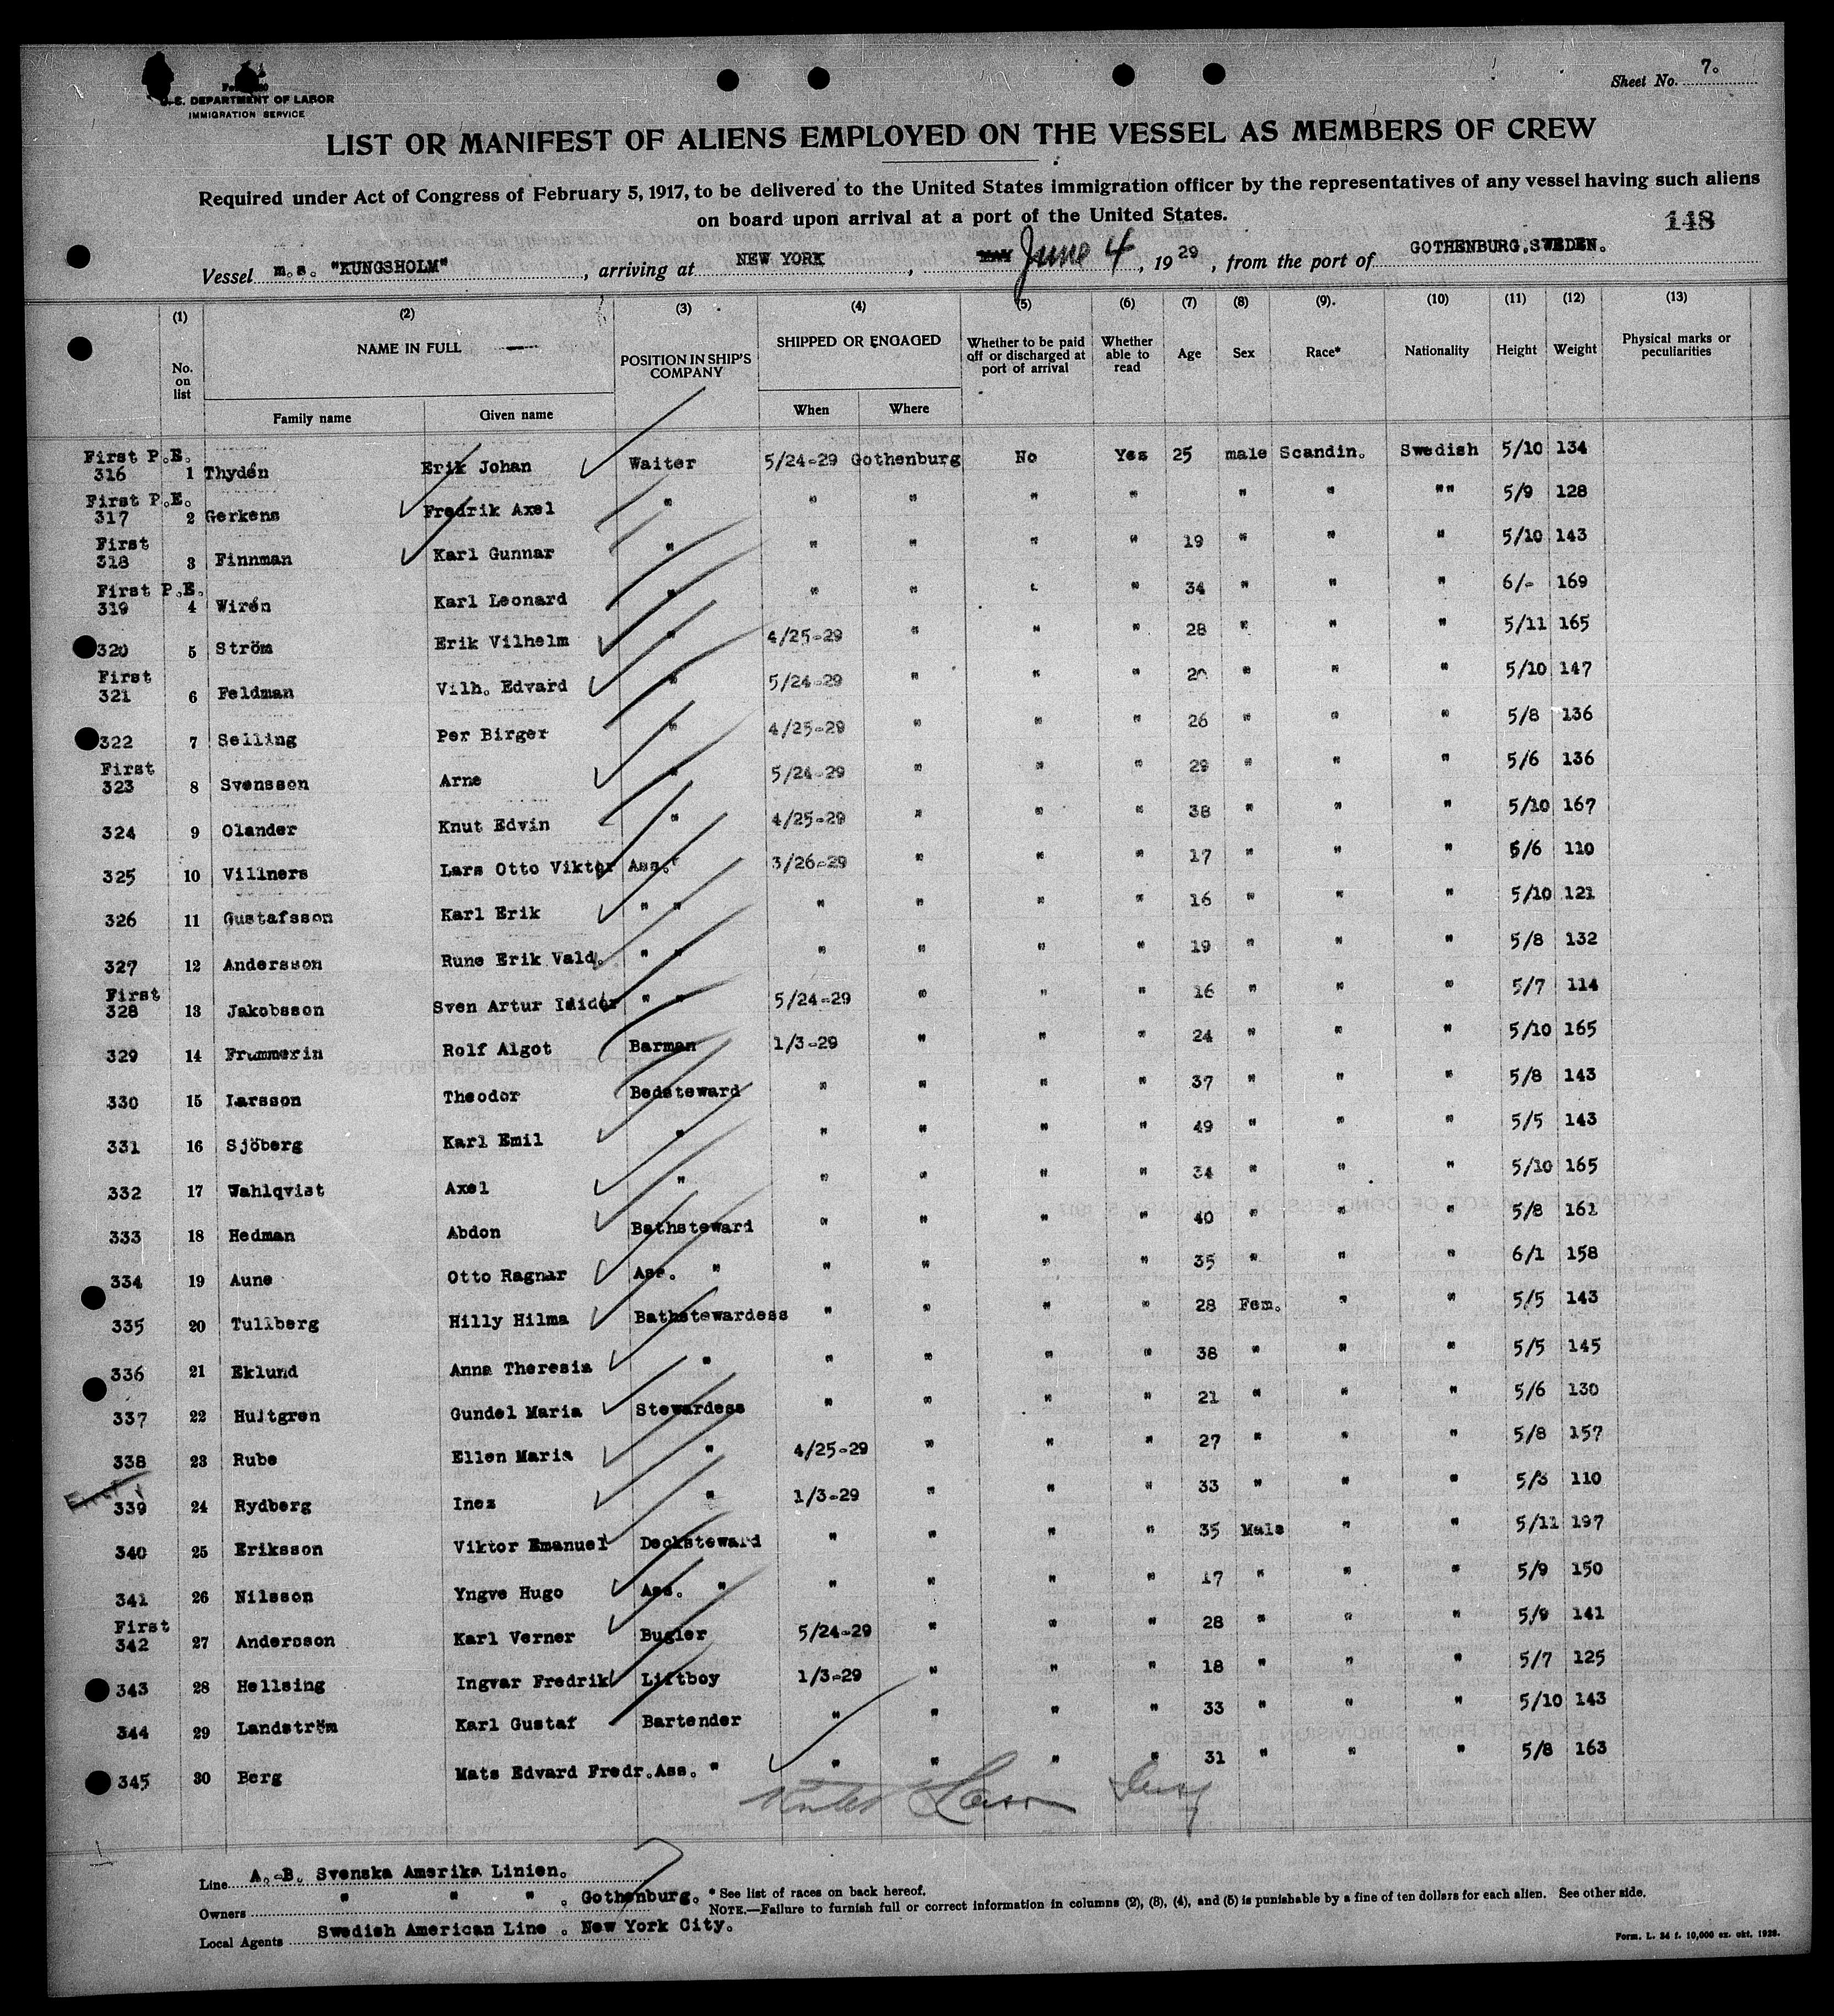 Sheet No. 7.
U.S. DEPARTMENT OF LABOR
IMMIGRATION SERVICE
LIST OR MANIFEST OF ALIENS EMPLOYED ON THE VESSEL AS MEMBERS OF CREW
Required under Act of Congress of February 5, 1917, to be delivered to the United States immigration officer by the representatives of any vessel having such aliens
on board upon arrival at a port of the United States.
148
Vessel m.s. "KUNGSHOLM", arriving at NEW YORK, MAY June 4, 1929, from the port of GOTHENBURG, SWEDEN.
(1) (2) (3) (4) (5) (6) (7) (8) (9). (10) (11) (12) (13)
No. on list NAME IN FULL POSITION IN SHIP'S COMPANY SHIPPED OR ENGAGED Whether to be paid off or discharged at port of arrival Whether able to read Age Sex Race* Nationality Height Weight Physical marks or peculiarities
Family name Given name When Where
First P.E.
316 1 Thydén Erik Johan Waiter 5/24-29 Gothenburg No Yes 25 male Scandin. Swedish 5/10 134
First P.E.
317 2 Gerkens Fredrik Axel " " " " " " " "" 5/9 128
First
318 3 Finnman Karl Gunnar " " " " " 19 " " " 5/10 143
First P.E.
319 4 Wirén Karl Leonard " " " " " 34 " " " 6/- 169
320 5 Ström Erik Vilhelm " 4/25-29 " " " 28 " " " 5/11 165
First
321 6 Feldman Vilh. Edvard " 5/24-29 " " " 20 " " " 5/10 147
322 7 Selling Per Birger " 4/25-29 " " " 26 " " " 5/8 136
First
323 8 Svensson Arne " 5/24-29 " " " 29 " " " 5/6 136
324 9 Olander Knut Edvin " 4/25-29 " " " 38 " " " 5/10 167
325 10 Villners Lars Otto Viktor Ass." 3/26-29 " " " 17 " " " 5/6 110
326 11 Gustafsson Karl Erik " " " " " " 16 " " " 5/10 121
327 12 Andersson Rune Erik Vald. " " " " " " 19 " " " 5/8 132
First
328 13 Jakobsson Sven Artur Isidor " " 5/24-29 " " " 16 " " " 5/7 114
329 14 Frummerin Rolf Algot Barman 1/3-29 " " " 24 " " " 5/10 165
330 15 Larsson Theodor Bedsteward " " " " 37 " " " 5/8 143
331 16 Sjöberg Karl Emil " " " " " 49 " " " 5/5 143
332 17 Wahlqvist Axel " " " " " 34 " " " 5/10 165
333 18 Hedman Abdon Bathsteward " " " " 40 " " " 5/8 161
334 19 Aune Otto Ragnar Ass. " " " " " 35 " " " 6/1 158
335 20 Tullberg Hilly Hilma Bathstewardess " " " " 28 Fem. " " 5/5 143
336 21 Eklund Anna Theresia " " " " " 38 " " " 5/5 145
337 22 Hultgren Gundel Maria Stewardess " " " " 21 " " " 5/6 130
338 23 Rube Ellen Maria " 4/25-29 " " " 27 " " " 5/8 157
339 24 Rydberg Inez " 1/3-29 " " " 33 " " " 5/3 110
340 25 Eriksson Viktor Emanuel Decksteward " " " " 35 Male " " 5/11 197
341 26 Nilsson Yngve Hugo Ass. " " " " " 17 " " " 5/9 150
First
342 27 Andersson Karl Verner Bugler 5/24-29 " " " 28 " " " 5/9 141
343 28 Hellsing Ingvar Fredrik Liftboy 1/3-29 " " " 18 " " " 5/7 125
344 29 Landström Karl Gustaf Bartender " " " " 33 " " " 5/10 143
345 30 Berg Mats Edvard Fredr. Ass. " " " " " 31 " " " 5/8 163
Line A.-B. Svenska Amerika Linien.
Owners " " " . Gothenburg.
* See list of races on back hereof.
NOTE.—Failure to furnish full or correct information in columns (2), (3), (4), and (5) is punishable by a fine of ten dollars for each alien. See other side.
Local Agents Swedish American Line . New York City.
Form. L. 34 f. 10,000 ex. okt. 1928.